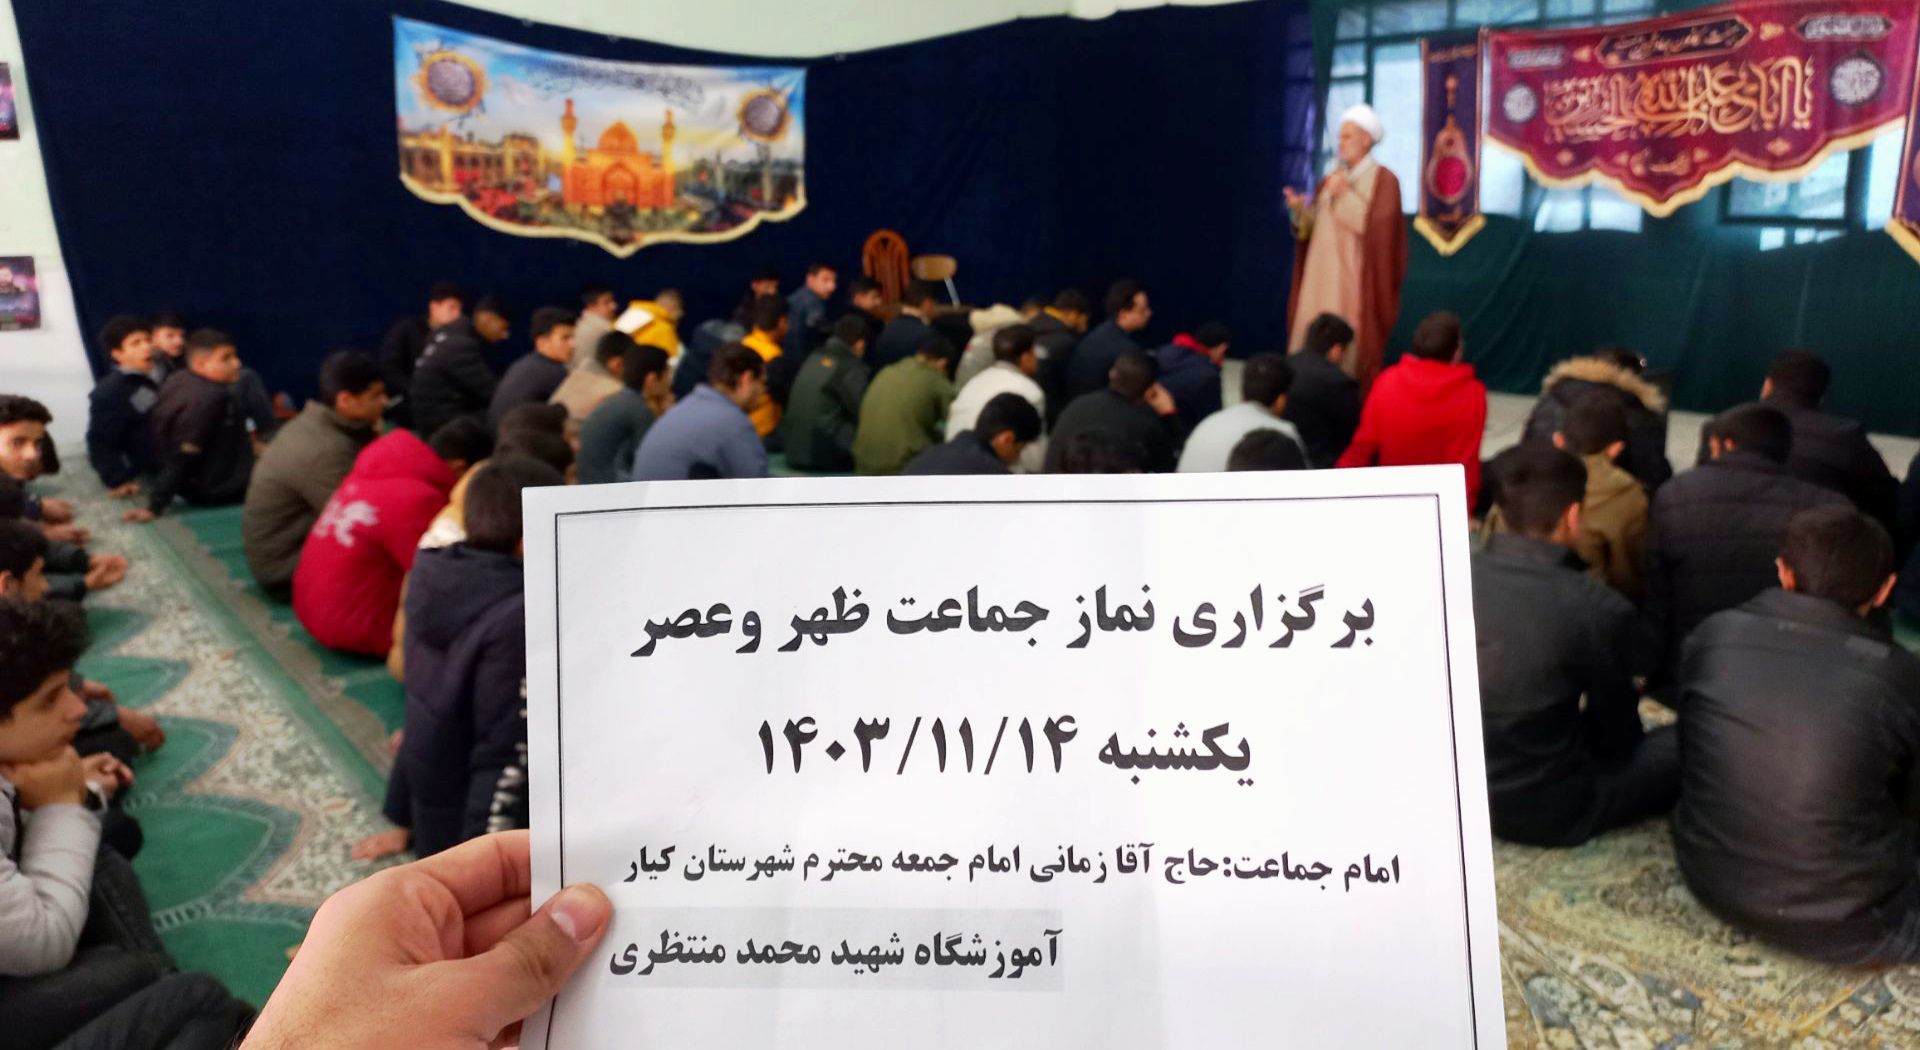 یا اباعبدالله الحسین
برگزاری نماز جماعت ظهر وعصر
یکشنبه ۱۴۰۳/۱۱/۱۴
امام جماعت:حاج آقا زمانی امام جمعه محترم شهرستان کیار
آموزشگاه شهید محمد منتظری